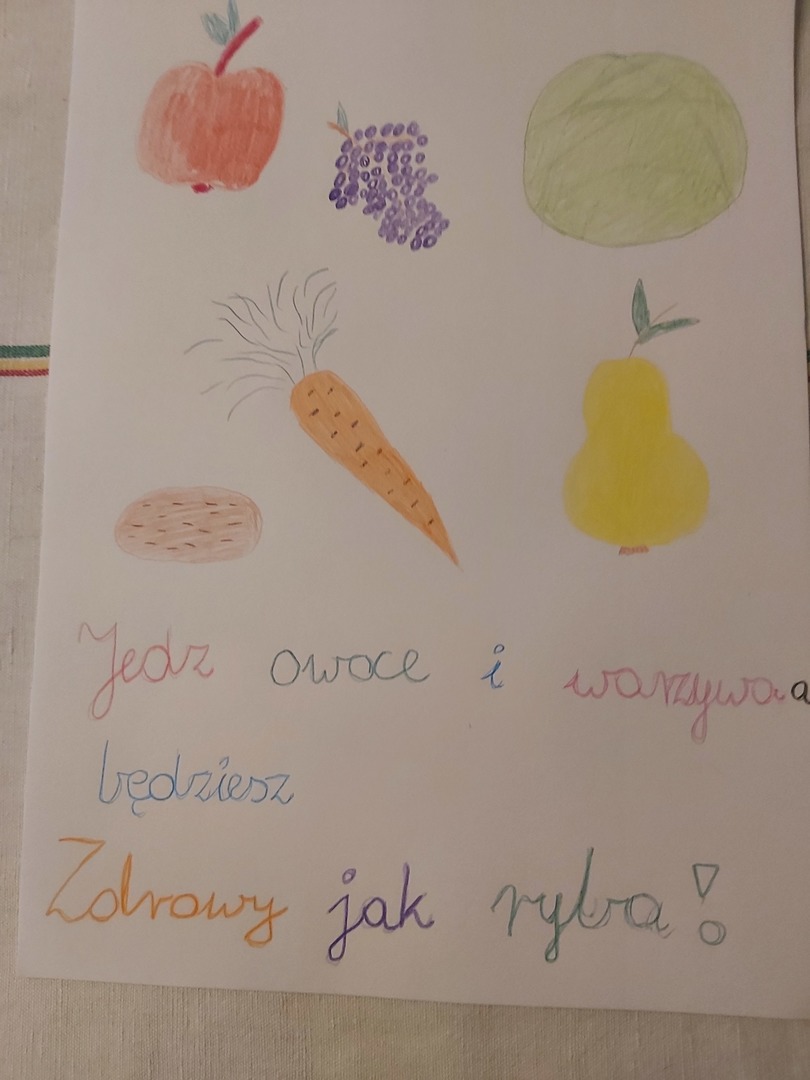 Jedz owoce i warzywa a
będziesz
Zdrowy jak ryba!